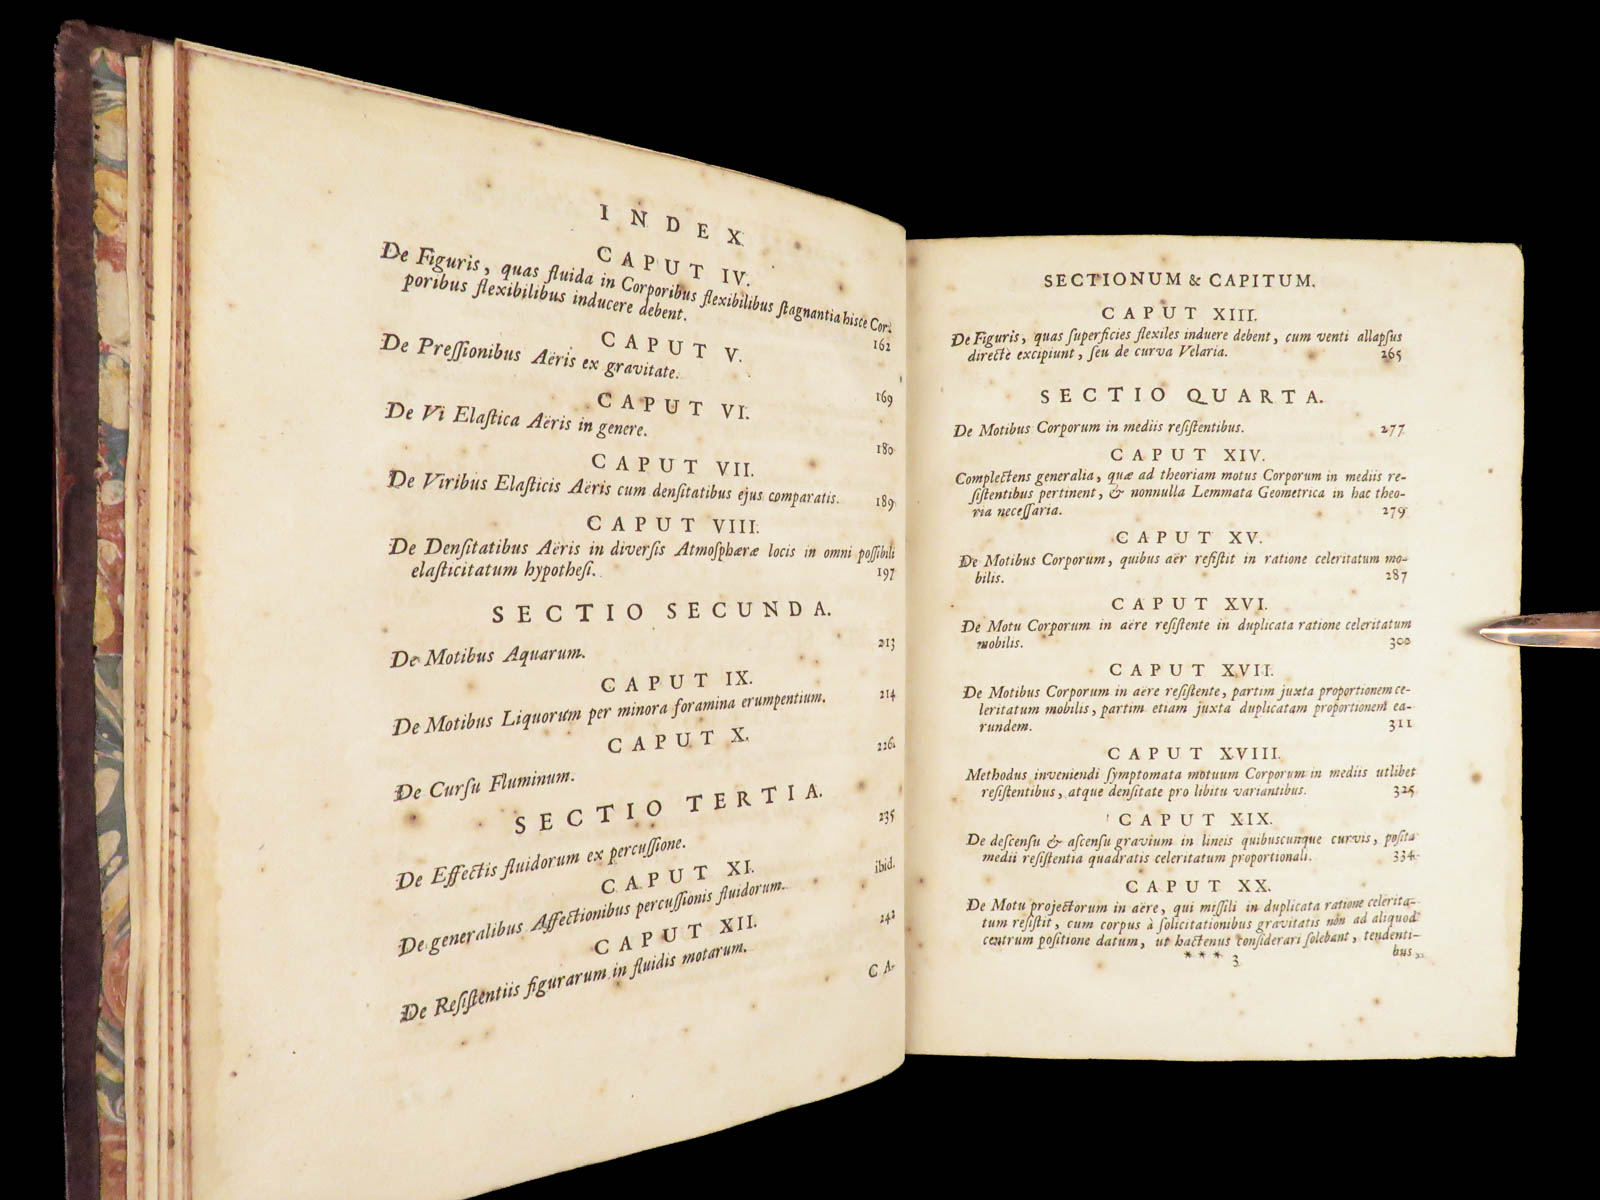 INDEX
CAPUT IV.
De Figuris, quas fluida in Corporibus flexibilibus stagnantia hisce Cor-
poribus flexibilibus inducere debent. 162
CAPUT V.
De Pressionibus Aëris ex gravitate. 169
CAPUT VI.
De Vi Elastica Aëris in genere. 180
CAPUT VII.
De Viribus Elasticis Aëris cum densitatibus ejus comparatis. 189
CAPUT VIII.
De Densitatibus Aëris in diversis Atmosphæræ locis in omni possibili
elasticitatum hypothesi. 197
SECTIO SECUNDA.
De Motibus Aquarum. 213
CAPUT IX.
De Motibus Liquorum per minora foramina erumpentium. 214
CAPUT X.
De Cursu Fluminum. 226
SECTIO TERTIA.
De Effectis fluidorum ex percussione. 235
CAPUT XI.
De generalibus Affectionibus percussionis fluidorum. ibid.
CAPUT XII.
De Resistentiis figurarum in fluidis motarum. 242
CA-
SECTIONUM & CAPITUM.
CAPUT XIII.
De Figuris, quas superficies flexiles induere debent, cum venti allapsus
directè excipiunt, seu de curva Velaria. 265
SECTIO QUARTA.
De Motibus Corporum in mediis resistentibus. 277
CAPUT XIV.
Complectens generalia, quæ ad theoriam motus Corporum in mediis re-
sistentibus pertinent, & nonnulla Lemmata Geometrica in hac theo-
ria necessaria. 279
CAPUT XV.
De Motibus Corporum, quibus aër resistit in ratione celeritatum mo-
bilis. 287
CAPUT XVI.
De Motu Corporum in aëre resistente in duplicata ratione celeritatum
mobilis. 300
CAPUT XVII.
De Motibus Corporum in aëre resistente, partim juxta proportionem ce-
leritatum mobilis, partim etiam juxta duplicatam proportionem ea-
rundem. 311
CAPUT XVIII.
Methodus inveniendi symptomata motuum Corporum in mediis utlibet
resistentibus, atque densitate pro libitu variantibus. 325
CAPUT XIX.
De descensu & ascensu gravium in lineis quibuscunque curvis, posita
medii resistentia quadratis celeritatum proportionali. 334
CAPUT XX.
De Motu projectorum in aëre, qui missili in duplicata ratione celerita-
tum resistit, cum corpus à solicitationibus gravitatis non ad aliquod
centrum positione datum, ut hactenus considerari solebant, tendenti-
*** 3 bus,